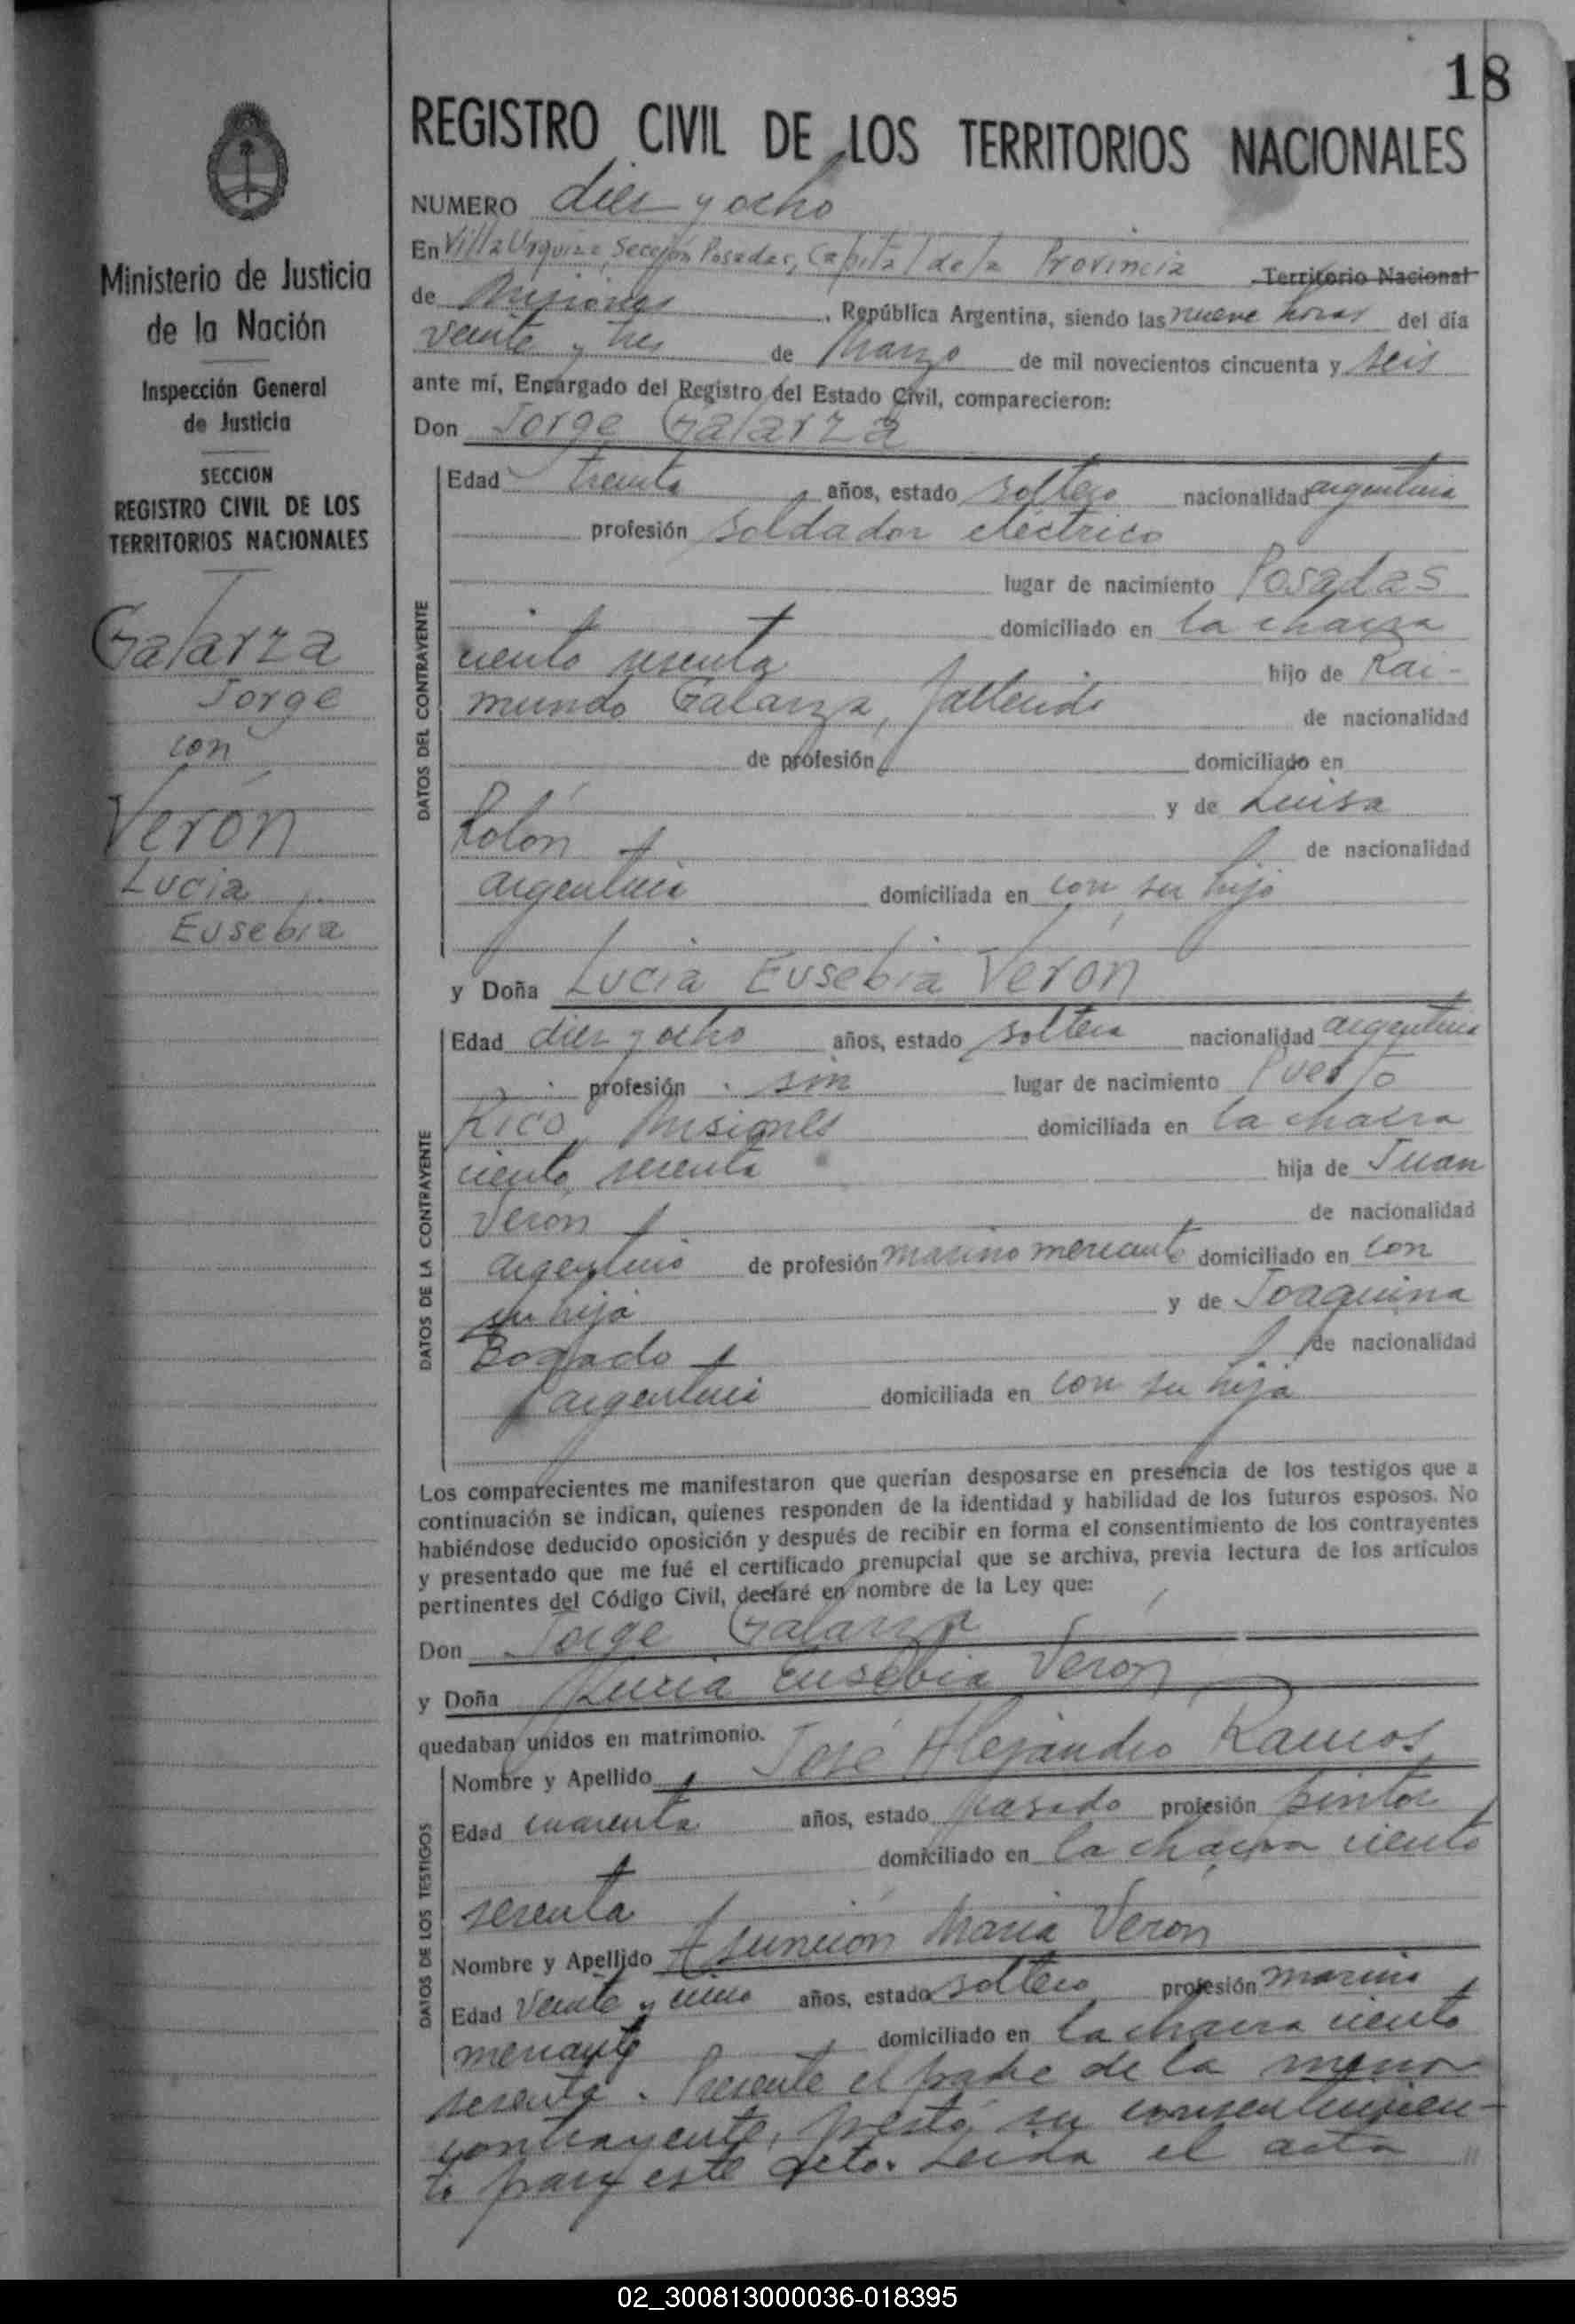 18
REGISTRO CIVIL DE LOS TERRITORIOS NACIONALES
Ministerio de Justicia
de la Nación
Inspección General
de Justicia
SECCION
REGISTRO CIVIL DE LOS
TERRITORIOS NACIONALES
Galarza
Jorge
con
Verón
Lucia
Eusebia
NUMERO diez y ocho
En Villa Urquiza, Sección Posadas, Capital de la Provincia Territorio Nacional
de Misiones, República Argentina, siendo las nueve horas del día
veinte y tres de Marzo de mil novecientos cincuenta y seis
ante mí, Encargado del Registro del Estado Civil, comparecieron:
Don Jorge Galarza
DATOS DEL CONTRAYENTE
Edad treinta años, estado soltero nacionalidad argentina
profesión soldador eléctrico
lugar de nacimiento Posadas
domiciliado en la chacra
ciento sesenta hijo de Rai-
mundo Galarza, fallecido de nacionalidad
de profesión domiciliado en
y de Luisa
Rolón de nacionalidad
argentina domiciliada en con su hijo
y Doña Lucia Eusebia Verón
DATOS DE LA CONTRAYENTE
Edad diez y ocho años, estado soltera nacionalidad argentina
profesión sin lugar de nacimiento Puerto
Rico, Misiones domiciliada en la chacra
ciento sesenta hija de Juan
Veron de nacionalidad
argentino de profesión marino mercante domiciliado en con
su hija y de Joaquina
Bogado de nacionalidad
argentina domiciliada en con su hija
Los comparecientes me manifestaron que querían desposarse en presencia de los testigos que a
continuación se indican, quienes responden de la identidad y habilidad de los futuros esposos. No
habiéndose deducido oposición y después de recibir en forma el consentimiento de los contrayentes
y presentado que me fué el certificado prenupcial que se archiva, previa lectura de los artículos
pertinentes del Código Civil, declaré en nombre de la Ley que:
Don Jorge Galarza
y Doña Lucia Eusebia Veron
quedaban unidos en matrimonio.
DATOS DE LOS TESTIGOS
Nombre y Apellido José Alejandro Ramos
Edad cuarenta años, estado casado profesión pintor
domiciliado en la chacra ciento
sesenta
Nombre y Apellido Asunción Maria Veron
Edad veinte y cinco años, estado soltero profesión marino
mercante domiciliado en la chacra ciento
sesenta. Presente el padre de la menor
contrayente, prestó su consentimien-
to para este acto. Leida el acta //
02_300813000036-018395